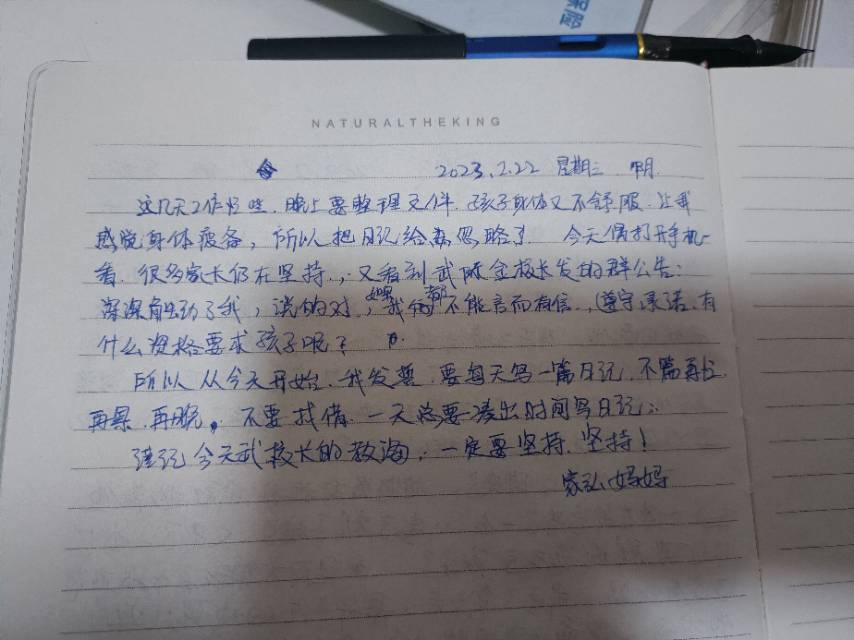 保险
NATURALTHEKING
2023.2.22 星期三 晴
这几天工作忙些.晚上要整理文件.孩子身体又不舒服.让我
感觉身体疲备,所以把日记给忽略了 今天偶打开手机
看.很多家长仍在坚持,又看到武陈金校长发的群公告:
深深触动了我,说的对,如果我们都不能言而有信.遵守承诺.有
什么资格要求孩子呢?
所以从今天开始.我发誓.要每天写一篇日记.不管再忙
再累.再晚,不要找借.一天总要凑出时间写日记.
谨记今天武校长的教海.一定要坚持.坚持!
家弘妈妈